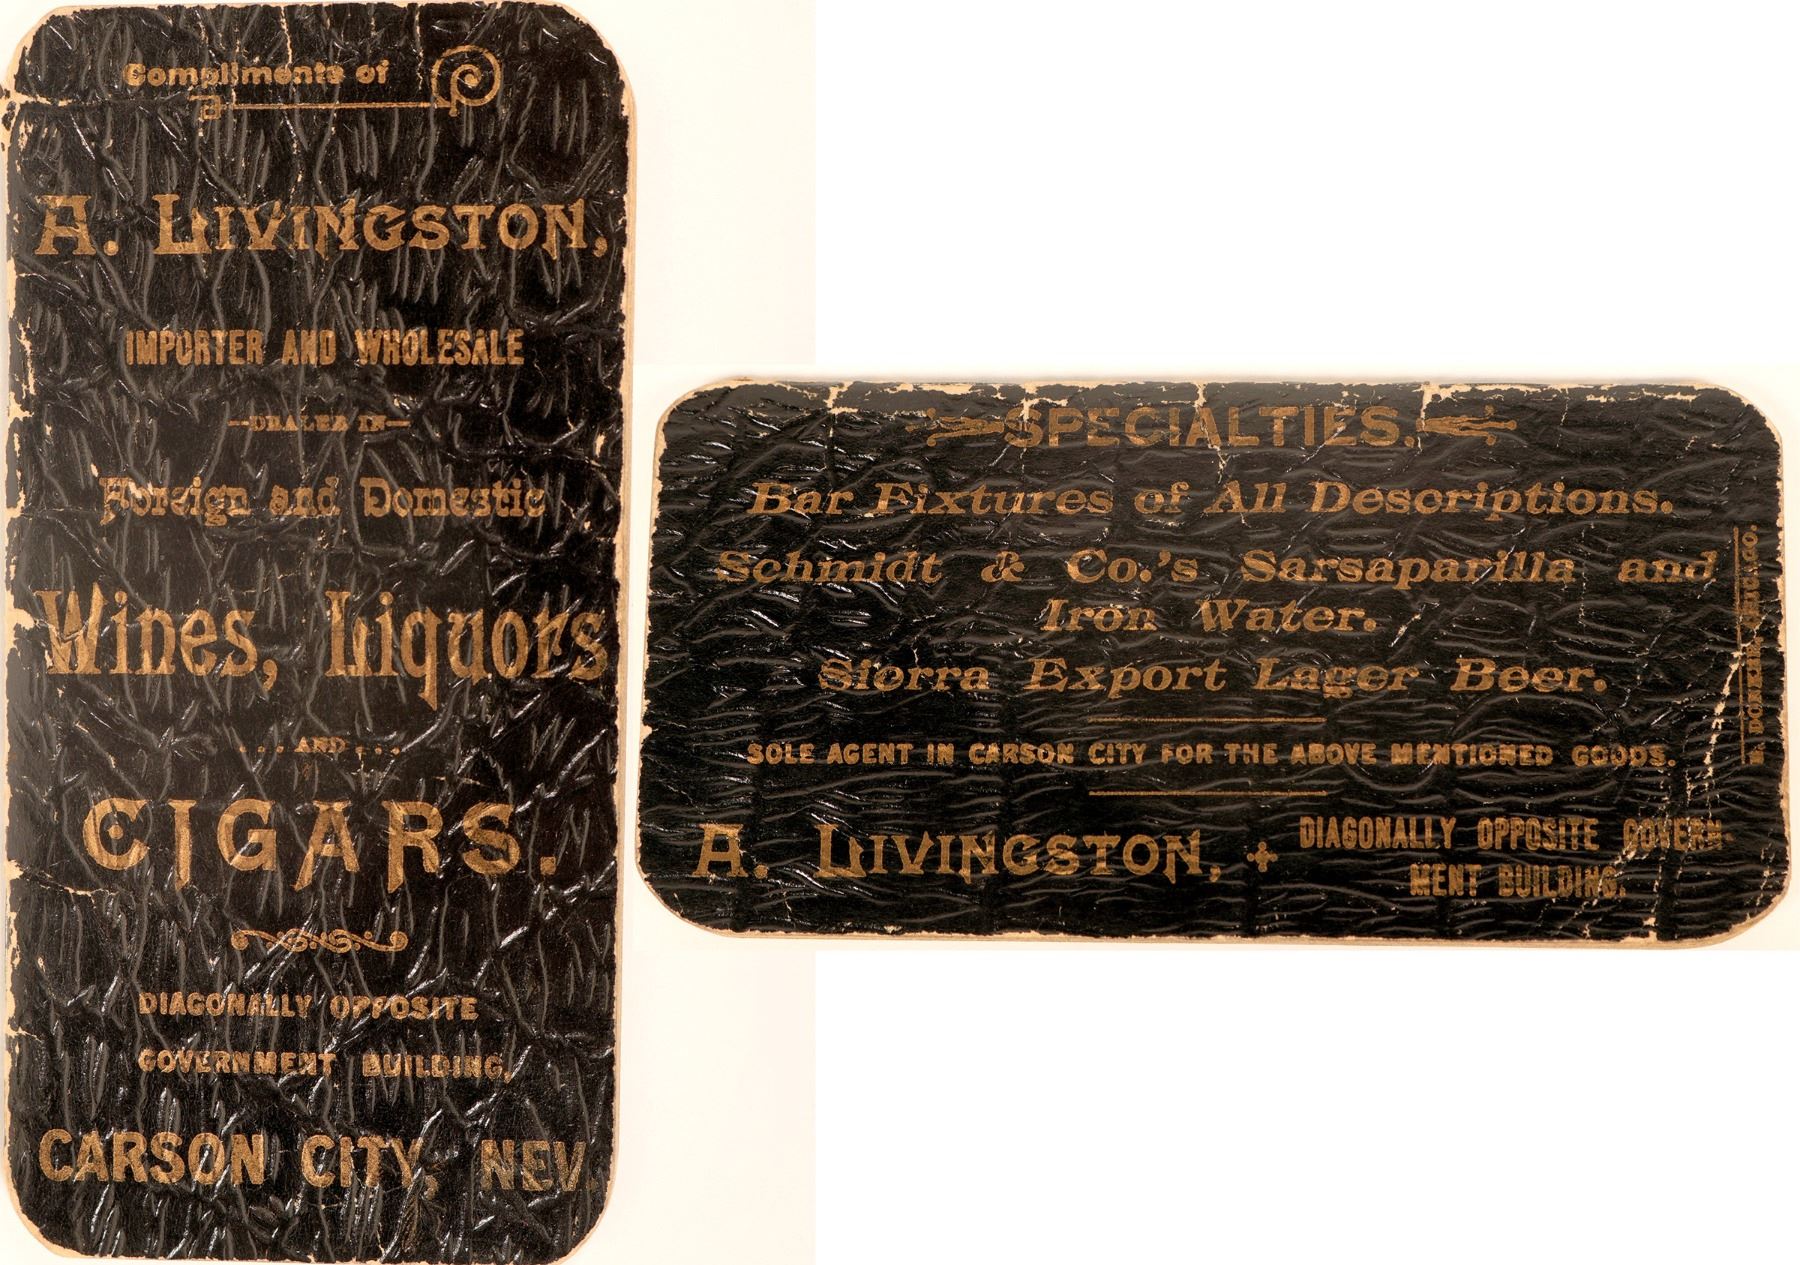 Compliments of
A. LIVINGSTON,
IMPORTER AND WHOLESALE
—DEALER IN—
Foreign and Domestic
Wines, Liquors
...AND...
CIGARS.
DIAGONALLY OPPOSITE
GOVERNMENT BUILDING,
CARSON CITY, NEV.
SPECIALTIES.
Bar Fixtures of All Descriptions.
Schmidt & Co.'s Sarsaparilla and
Iron Water.
Sierra Export Lager Beer.
SOLE AGENT IN CARSON CITY FOR THE ABOVE MENTIONED GOODS.
A. LIVINGSTON,
DIAGONALLY OPPOSITE GOVERN-
MENT BUILDING.